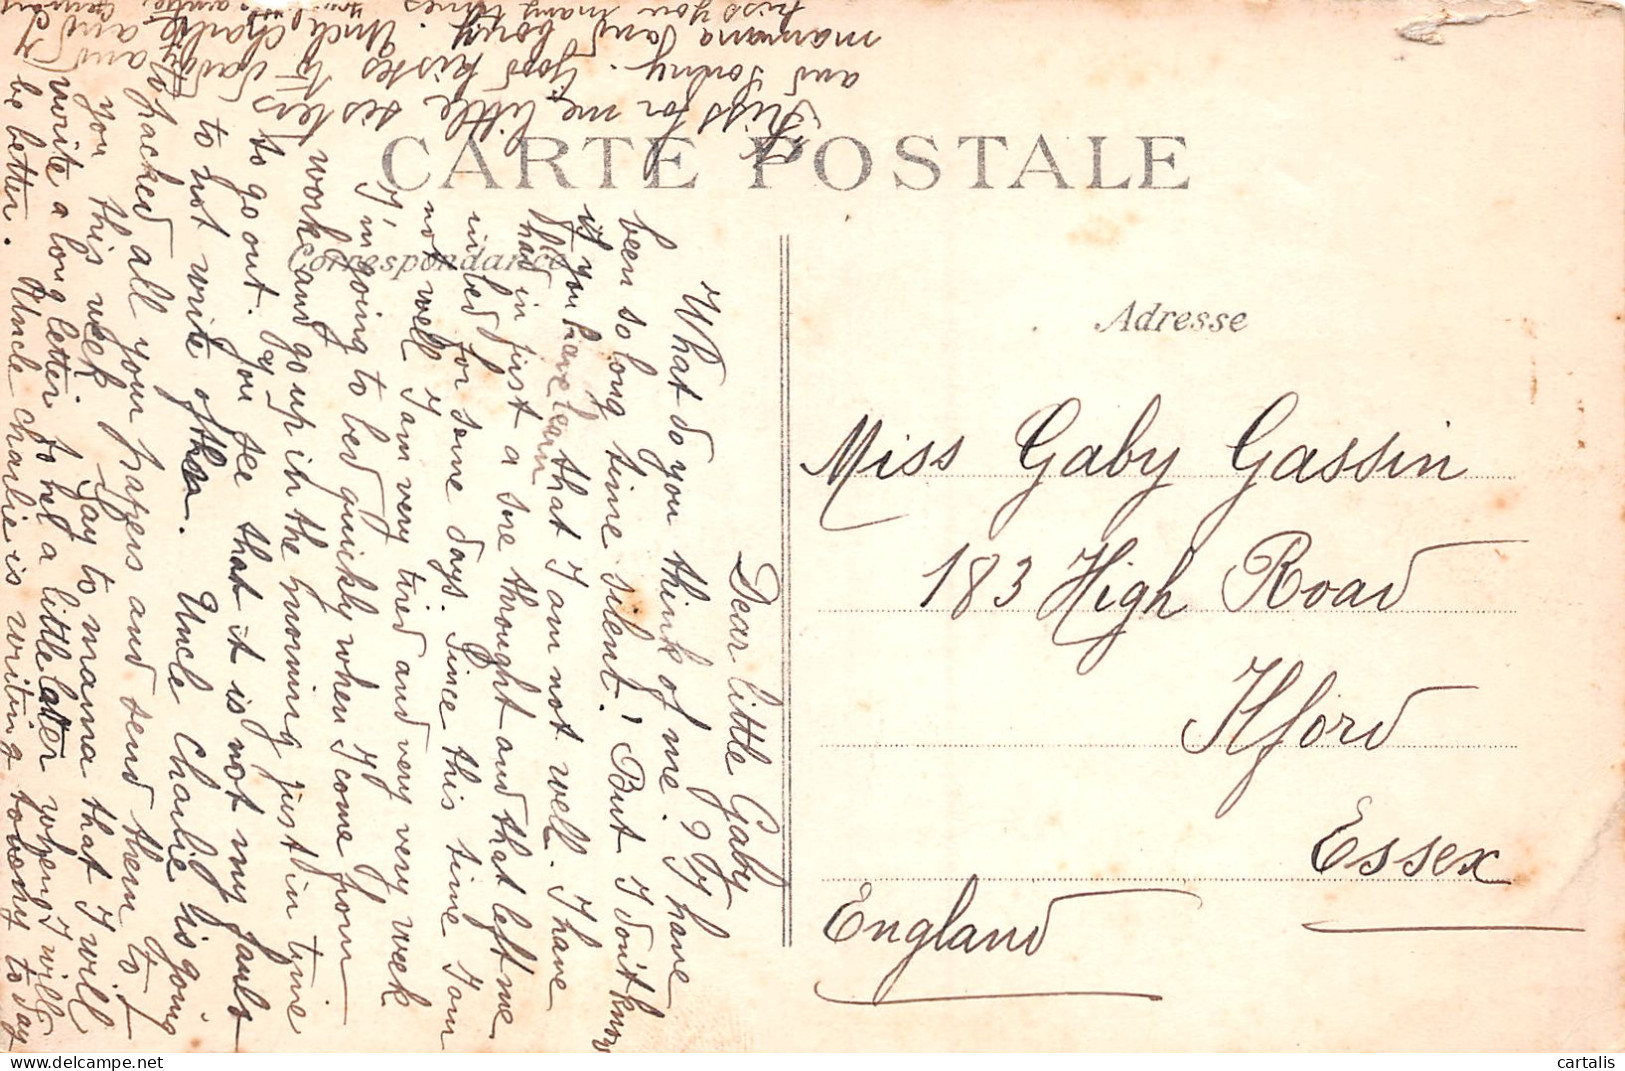 CARTE POSTALE
Correspondance
Adresse
Miss Gaby Gassin
183 High Road
Ilford
Essex
England
Dear little Gaby
What do you think of me? I have
been so long time silent! But I don't know
if you have learn that I am not well. I have
had in first a sore throught and that left me
in bed for some days. Since this time I am
not well I am very tired and very very week
I'm going to bed quickly when I come from
work and go up in the morning just in time
to go out. Say you see that it is not my fault
to not write often. Uncle Charlie is going
to packed all your papers and send them to
you this week. Say to mama that I will
write a long letter to hel a little later when I will
be better. Uncle Charlie is writing to Ted to day
Kiss for me little sisters
and Sonny. Good kisses to dad
mamma and boug. Uncle Charlie and I
kiss you many times
cartalis